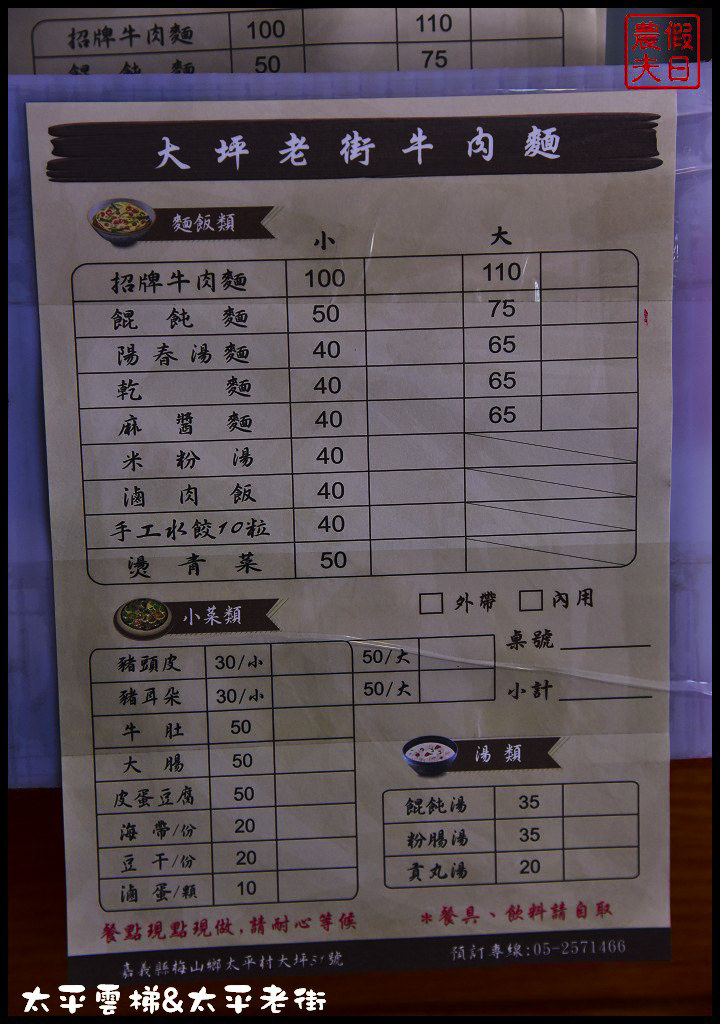 招牌牛肉麵 100 110
餛飩麵 50 75
農假
夫日
大坪老街牛肉麵
麵飯類
小 大
招牌牛肉麵 100 110
餛飩麵 50 75
陽春湯麵 40 65
乾麵 40 65
麻醬麵 40 65
米粉湯 40
滷肉飯 40
手工水餃10粒 40
燙青菜 50
□外帶 □內用
小菜類
桌號
豬頭皮 30/小 50/大
豬耳朵 30/小 50/大
小計
牛肚 50
大腸 50
皮蛋豆腐 50
海帶/份 20
豆干/份 20
滷蛋/顆 10
湯類
餛飩湯 35
粉腸湯 35
貢丸湯 20
餐點現點現做,請耐心等候
*餐具、飲料請自取
嘉義縣梅山鄉太平村大坪51號
預訂專線:05-2571466
太平雲梯&太平老街